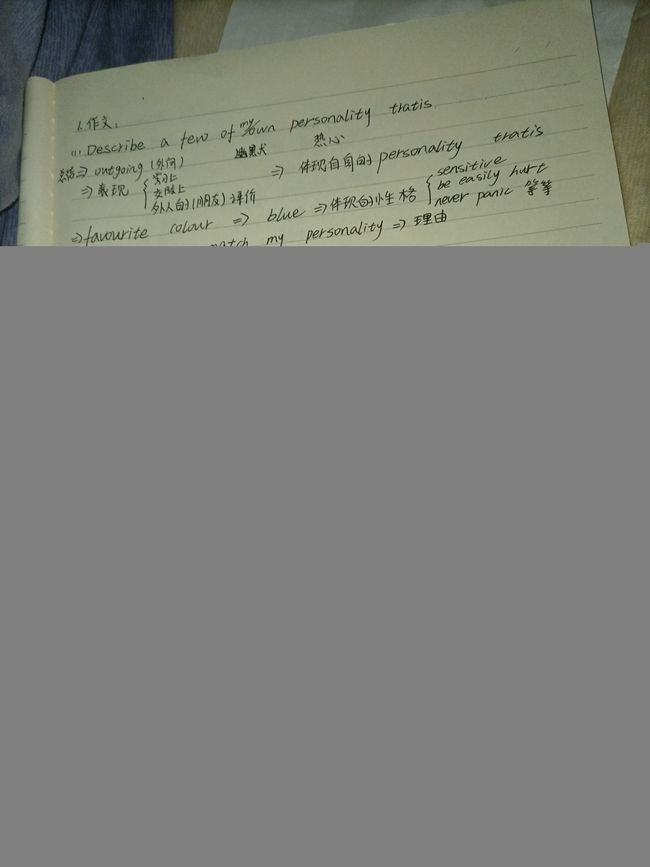 1.作文:
(1) Describe a few of my own personality tratis.
总结⇒ outgoing (外向) 幽默 热心
⇒ 表现 { 学习上 ⇒ 体现自身的 personality tratis
交际上
外人的(朋友)评价
⇒ favourite colour ⇒ blue ⇒ 体现的性格 { sensitive
be easily hurt
never panic 等等
match my personality ⇒ 理由